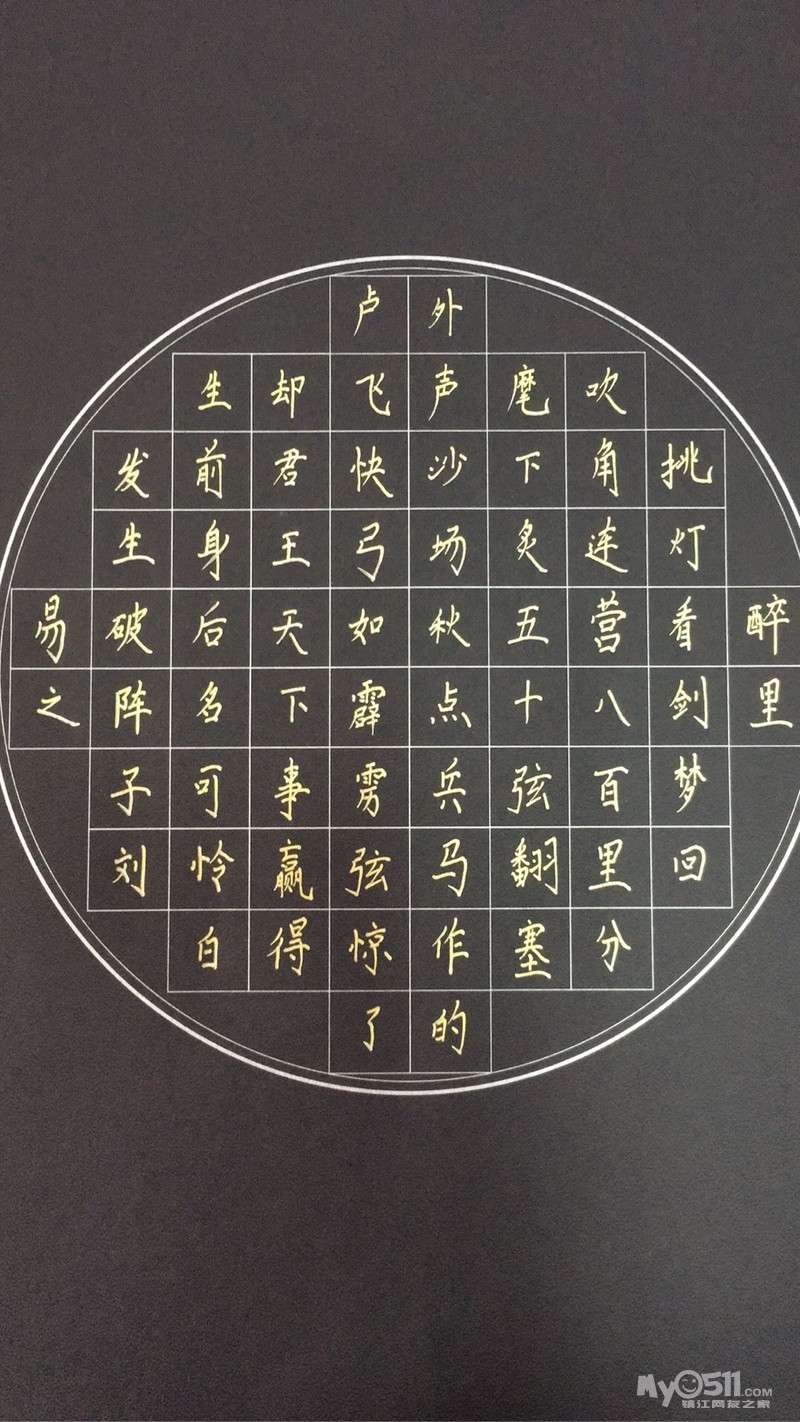 醉里
挑灯看剑梦回
吹角连营八百里分
麾下炙五十弦翻塞
外声沙场秋点兵马作的
卢飞快弓如霹雳弦惊了
却君王天下事赢得
生前身后名可怜白
发生破阵子刘
易之
My0511.com
镇江网友之家